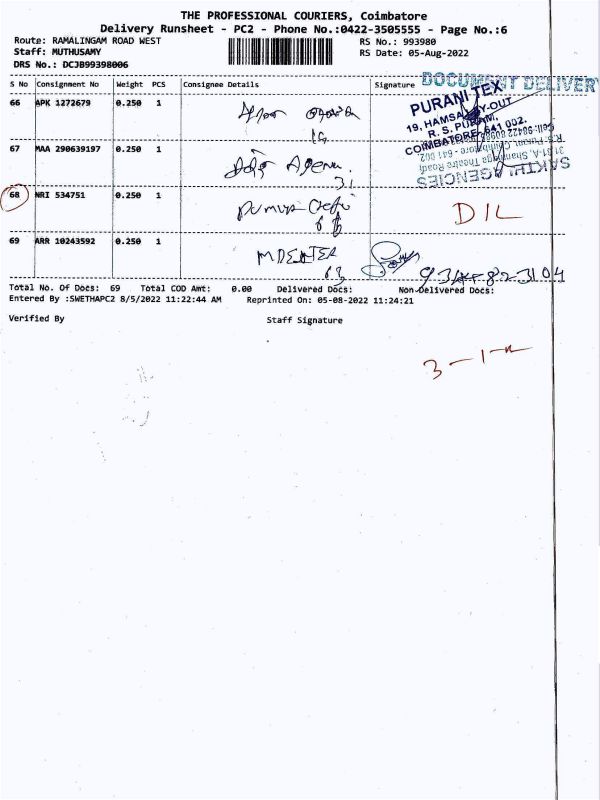 THE PROFESSIONAL COURIERS, Coimbatore
Delivery Runsheet - PC2 - Phone No.:0422-3505555 - Page No.:6
Route: RAMALINGAM ROAD WEST RS No.: 993980
Staff: MUTHUSAMY RS Date: 05-Aug-2022
DRS No.: DCJB99398006
S No Consignment No Weight PCS Consignee Details Signature
DOCUMENT DELIVERY
66 APK 1272679 0.250 1
PURANI TEX
R. S. PURAM,
COIMBATORE- 641 002.
67 MAA 290639197 0.250 1
31
SAKTHI AGENCIES
68 NRI 534751 0.250 1
DIL
69 ARR 10243592 0.250 1
63
Total No. Of Docs: 69 Total COD Amt: 0.00 Delivered Docs: Non-Delivered Docs:
Entered By :SWETHAPC2 8/5/2022 11:22:44 AM Reprinted On: 05-08-2022 11:24:21
Verified By Staff Signature